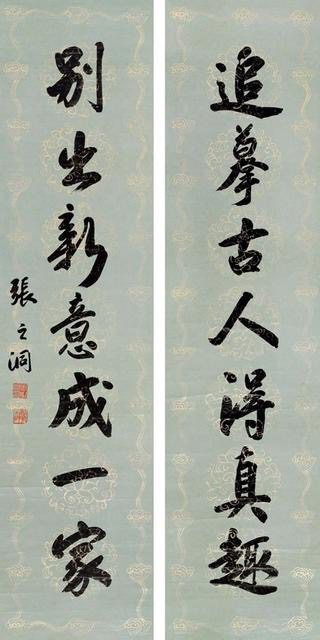 追摹古人得真趣
别出新意成一家
張之洞